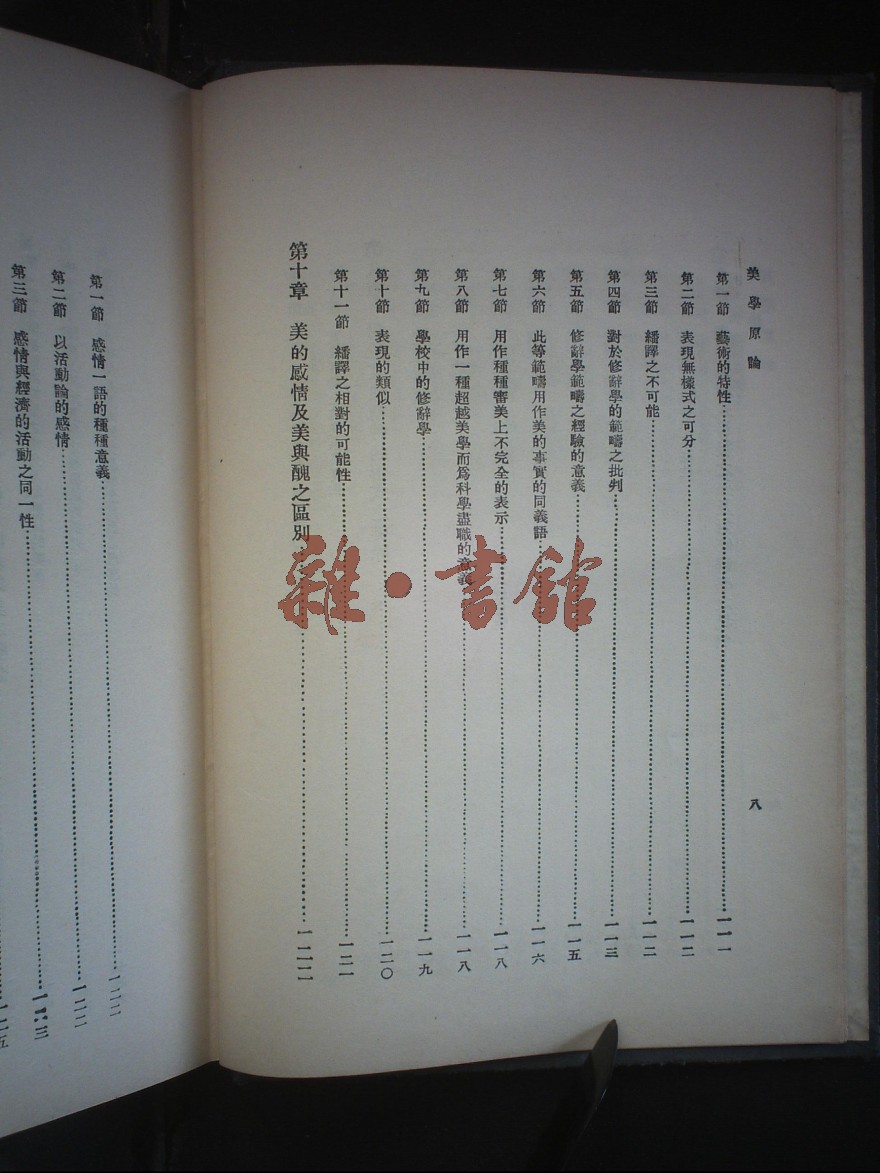 美學原論
八
第一節 藝術的特性 一一一
第二節 表現無樣式之可分 一一二
第三節 繙譯之不可能 一一二
第四節 對於修辭學的範疇之批判 一一三
第五節 修辭學範疇之經驗的意義 一一五
第六節 此等範疇用作美的事實的同義語 一一六
第七節 用作種種審美上不完全的表示 一一八
第八節 用作一種超越美學而爲科學盡職的意義 一一八
第九節 學校中的修辭學 一一九
第十節 表現的類似 一二〇
第十一節 繙譯之相對的可能性 一二一
第十章 美的感情及美與醜之區別 一二二
第一節 感情一語的種種意義 一二二
第二節 以活動論的感情 一二二
第三節 感情與經濟的活動之同一性 一二三
一二五
雜·書館